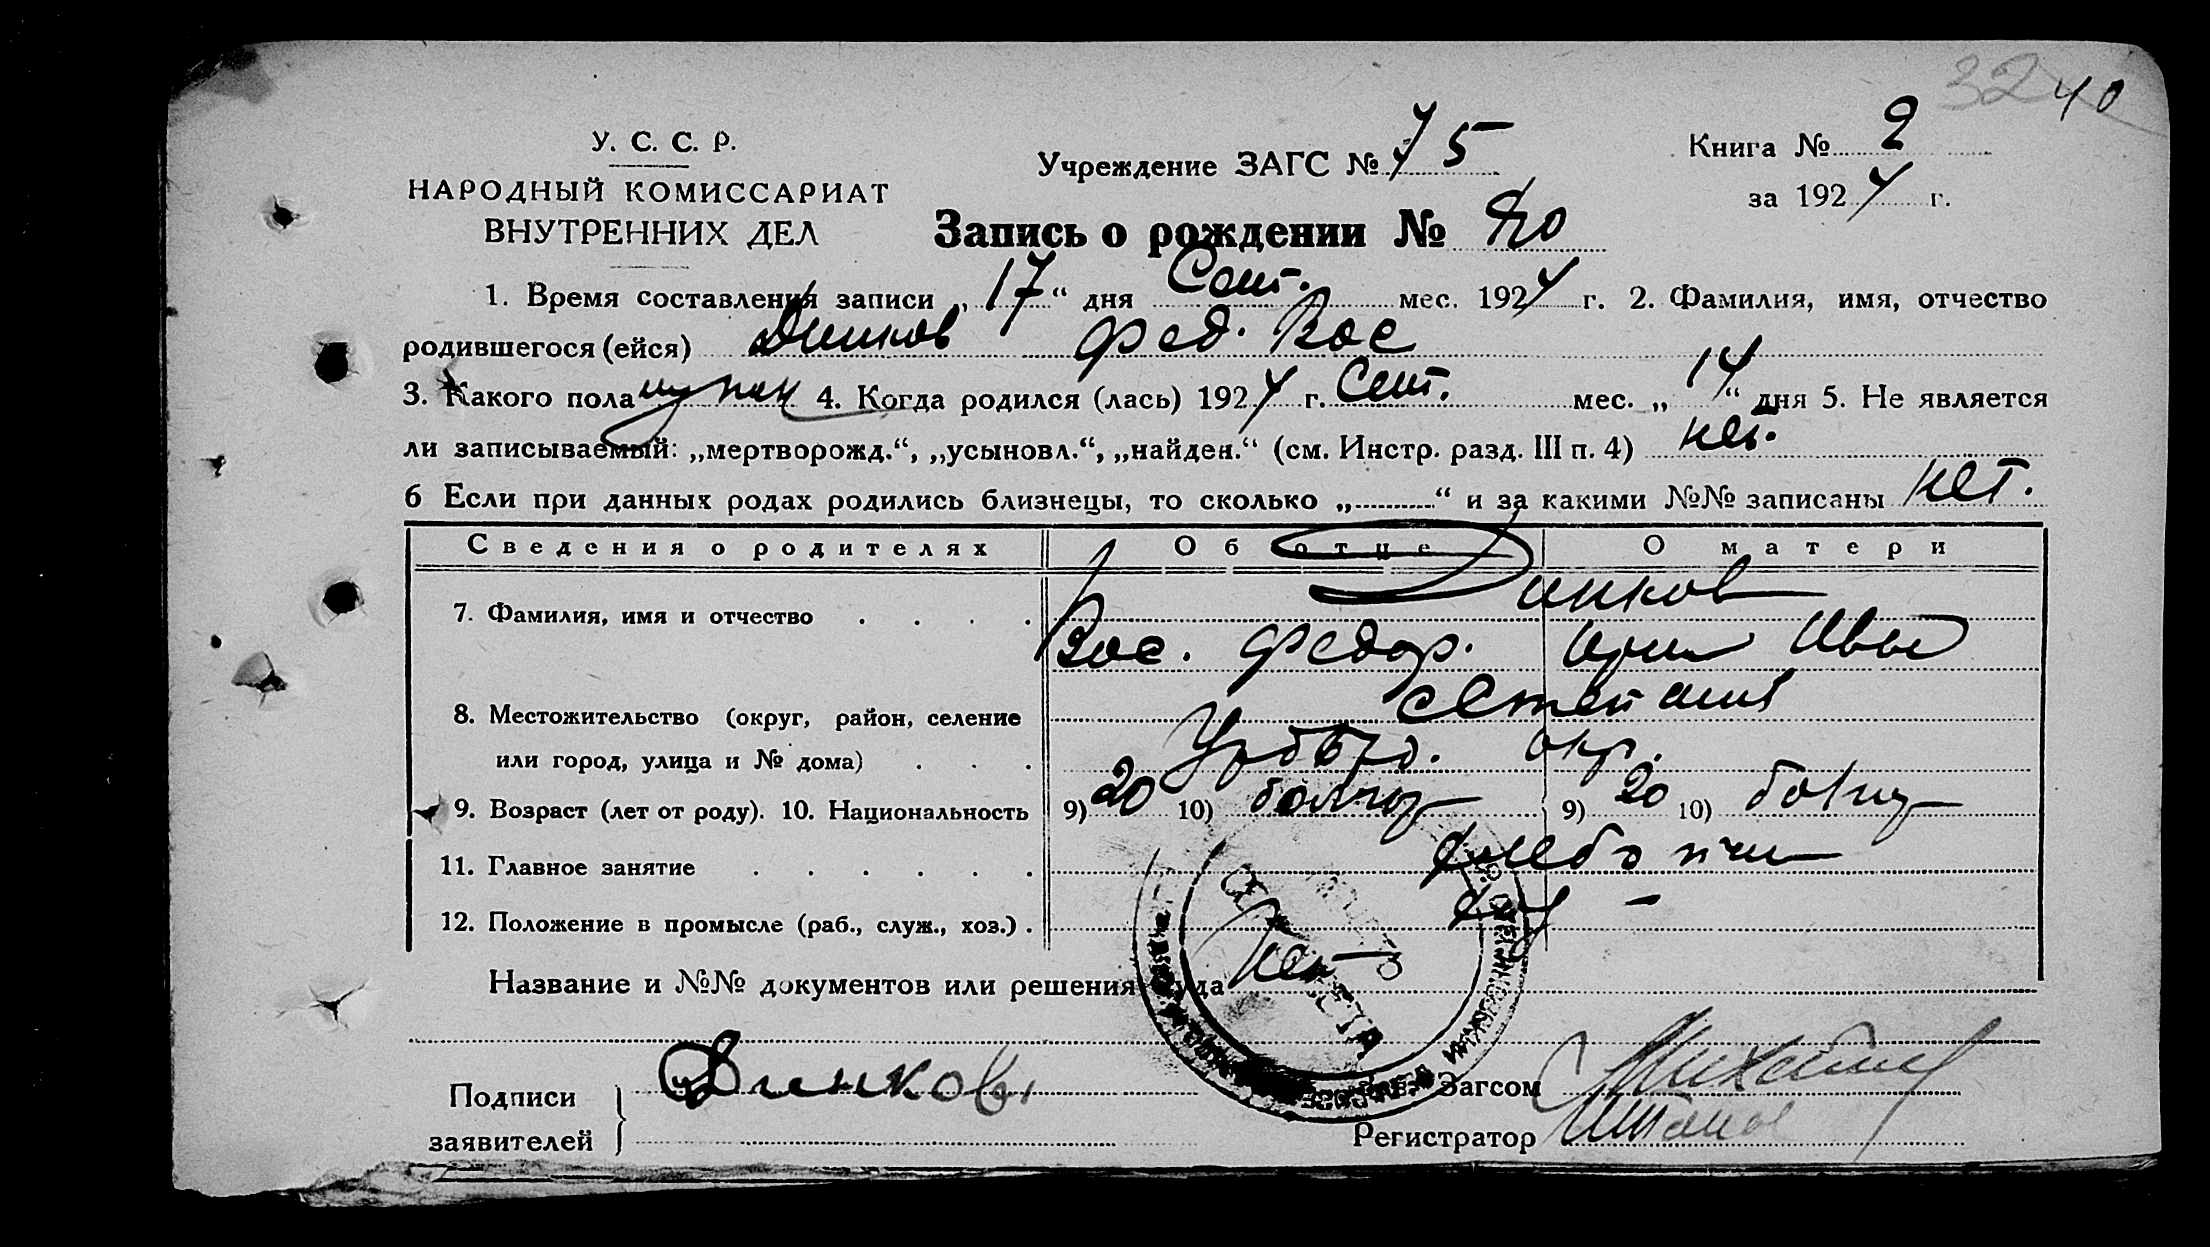 3240
У. С. С. Р.
НАРОДНЫЙ КОМИССАРИАТ
ВНУТРЕННИХ ДЕЛ
Учреждение ЗАГС № 75
Книга № 2
за 1924 г.
Запись о рождении №
1. Время составления записи „17“ дня Сент. мес. 1924 г. 2. Фамилия, имя, отчество
родившегося (ейся) Динков Фед. Вас
3. Какого пола муж 4. Когда родился (лась) 1924 г. Сент. мес. „14“ дня 5. Не является
ли записываемый: „мертворожд.“, „усыновл.“, „найден.“ (см. Инстр. разд. III п. 4) нет.
6 Если при данных родах родились близнецы, то сколько „..........“ и за какими №№ записаны нет.
Сведения о родителях Об отце О матери
7. Фамилия, имя и отчество . . . . Динков
Вас. Федор. Ирин Иван
8. Местожительство (округ, район, селение
или город, улица и № дома) . . . окр.
9. Возраст (лет от роду). 10. Национальность 9) 20 10) болгар 9) 20 10) болгар
11. Главное занятие . . . . . .
12. Положение в промысле (раб., служ., хоз.) . –
Название и №№ документов или решения суда нет
Подписи
заявителей
Динков
Зав. Загсом
Регистратор